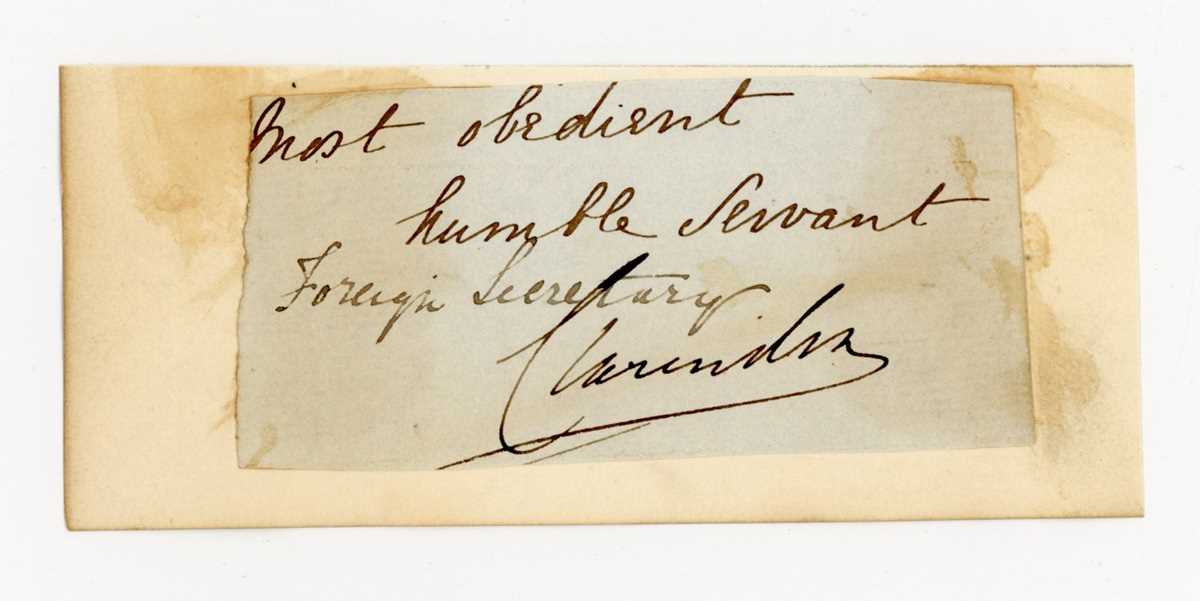 Most obedient
humble Servant
Foreign Secretary
Clarendon